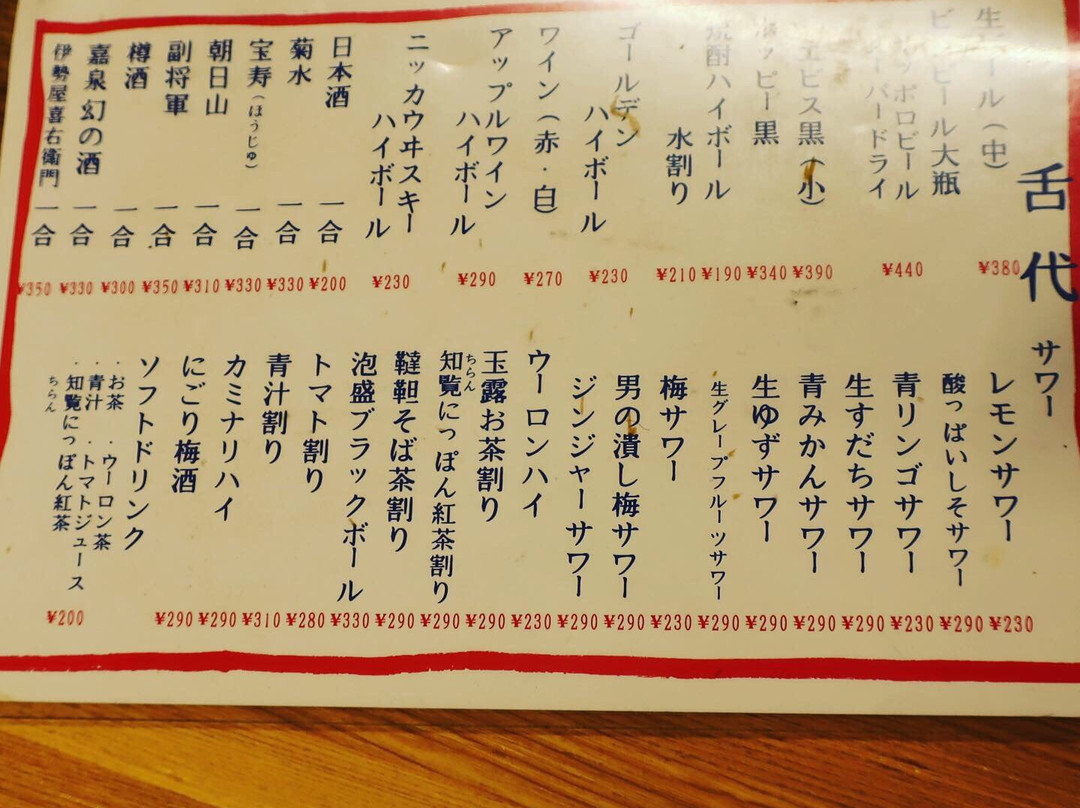 舌代
生ビール（中） ¥380
ビンビール大瓶
サッポロビール
スーパードライ ¥440
ヱビス黒（小） ¥390
ホッピー黒 ¥340
焼酎ハイボール ¥190
水割り ¥210
ゴールデン
ハイボール ¥230
ワイン（赤・白） ¥270
アップルワイン
ハイボール ¥290
ニッカウヰスキー
ハイボール ¥230
日本酒 一合 ¥200
菊水 一合 ¥330
宝寿（ほうじゅ） 一合 ¥330
朝日山 一合 ¥310
副将軍 一合 ¥350
樽酒 一合 ¥300
嘉泉 幻の酒 一合 ¥330
伊勢屋喜右衛門 一合 ¥350
サワー
レモンサワー ¥230
酸っぱいしそサワー ¥290
青リンゴサワー ¥230
生すだちサワー ¥290
青みかんサワー ¥290
生ゆずサワー ¥290
生グレープフルーツサワー ¥290
梅サワー ¥230
男の潰し梅サワー ¥290
ジンジャーサワー ¥290
ウーロンハイ ¥230
玉露お茶割り ¥290
ちらん
知覧にっぽん紅茶割り ¥290
韃靼そば茶割り ¥290
泡盛ブラックボール ¥330
トマト割り ¥280
青汁割り ¥310
カミナリハイ ¥290
にごり梅酒 ¥290
ソフトドリンク
・お茶 ・ウーロン茶
・青汁 ・トマトジュース
・知覧にっぽん紅茶
ちらん
¥200